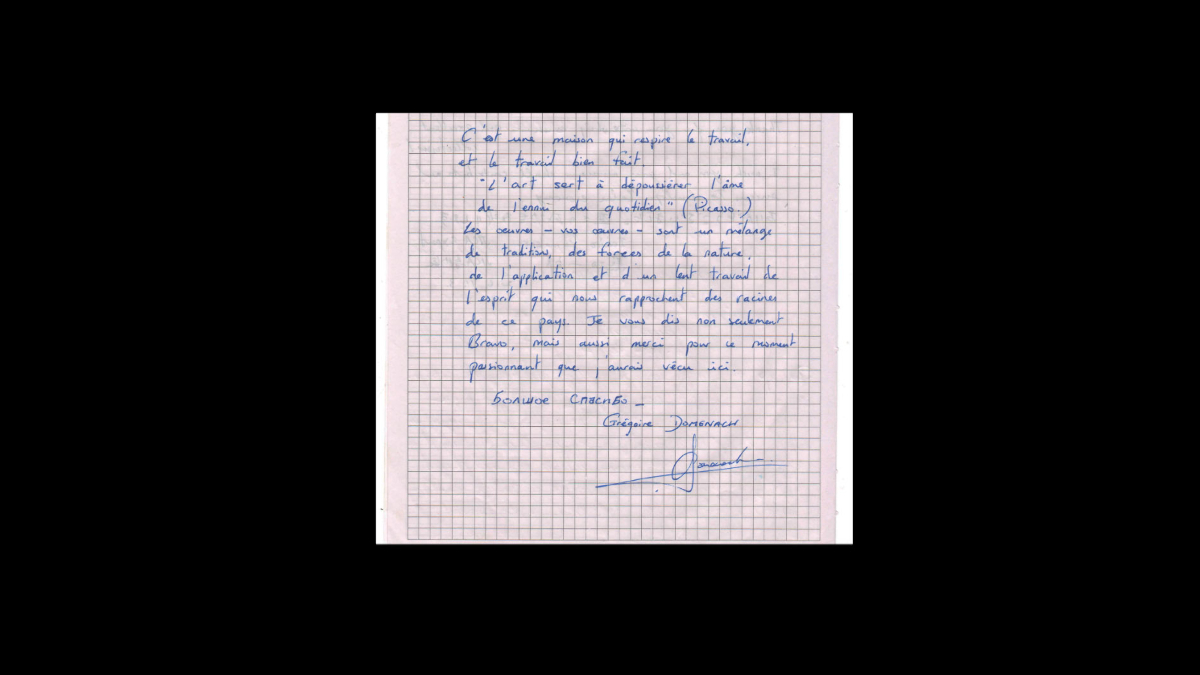 C'est une maison qui respire le travail,
et le travail bien fait.
"L'art sert à dépoussiérer l'âme
de l'ennui du quotidien" (Picasso.)
Les œuvres - vos œuvres - sont un mélange
de traditions, des forces de la nature,
de l'application et d'un lent travail de
l'esprit qui nous rapprochent des racines
de ce pays. Je vous dis non seulement
Bravo, mais aussi merci pour ce moment
passionnant que j'aurais vécu ici.
БОЛШОЕ СПАСИБО -
Grégoire DOMENACH